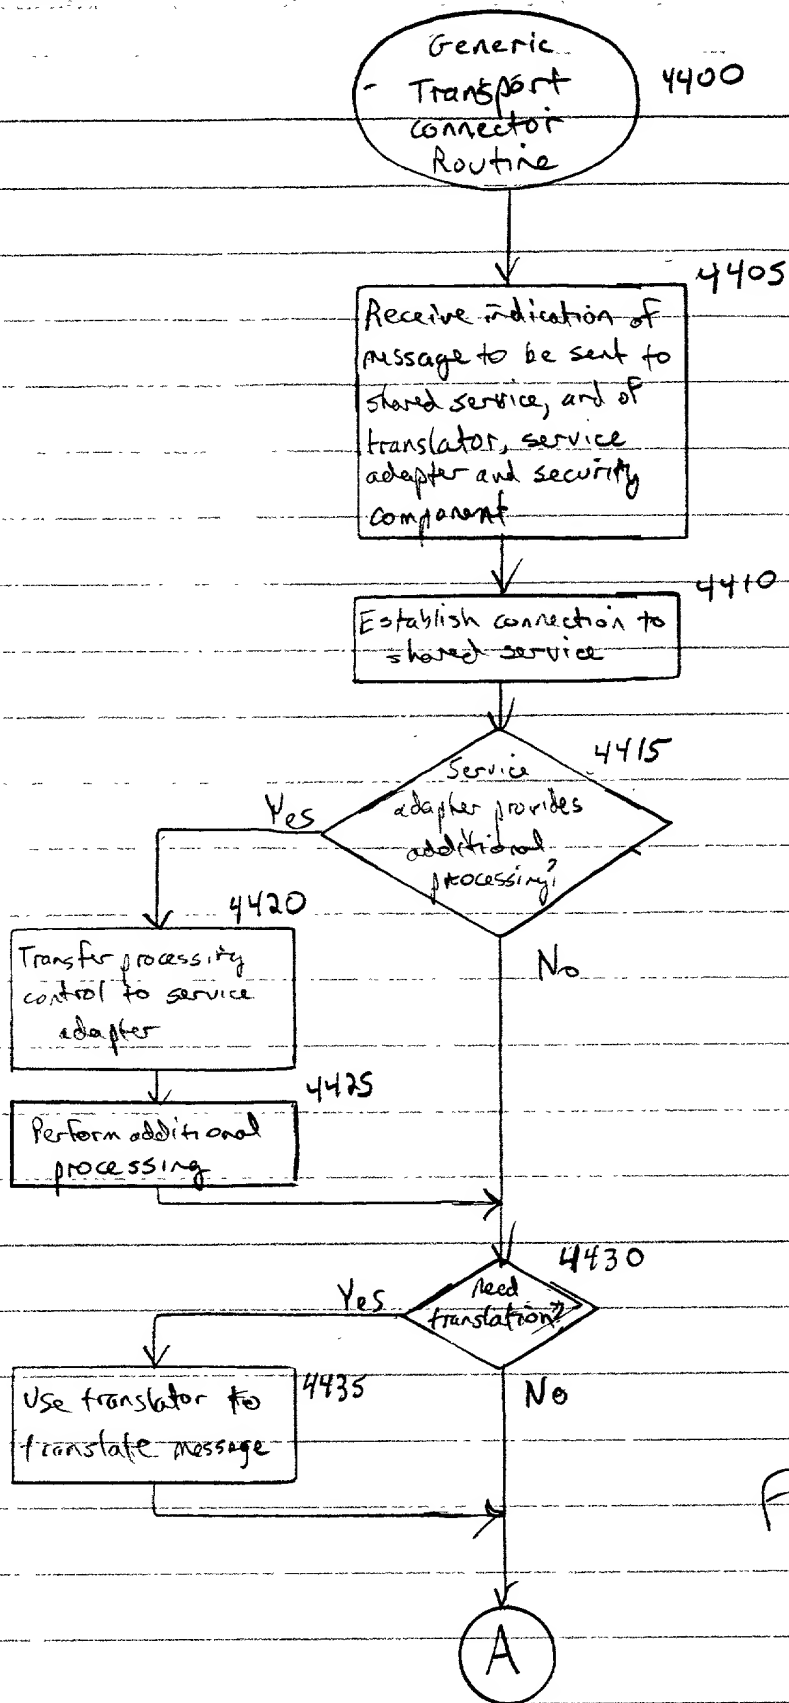 Generic
Transport
connector
Routine
4400
4405
Receive indication of
message to be sent to
shared service, and of
translator, service
adapter and security
component
4410
Establish connection to
shared service
4415
Service
adapter provides
additional
processing?
Yes
No
4420
Transfer processing
control to service
adapter
4425
Perform additional
processing
4430
Need
translation?
Yes
No
4435
Use translator to
translate message
F
A